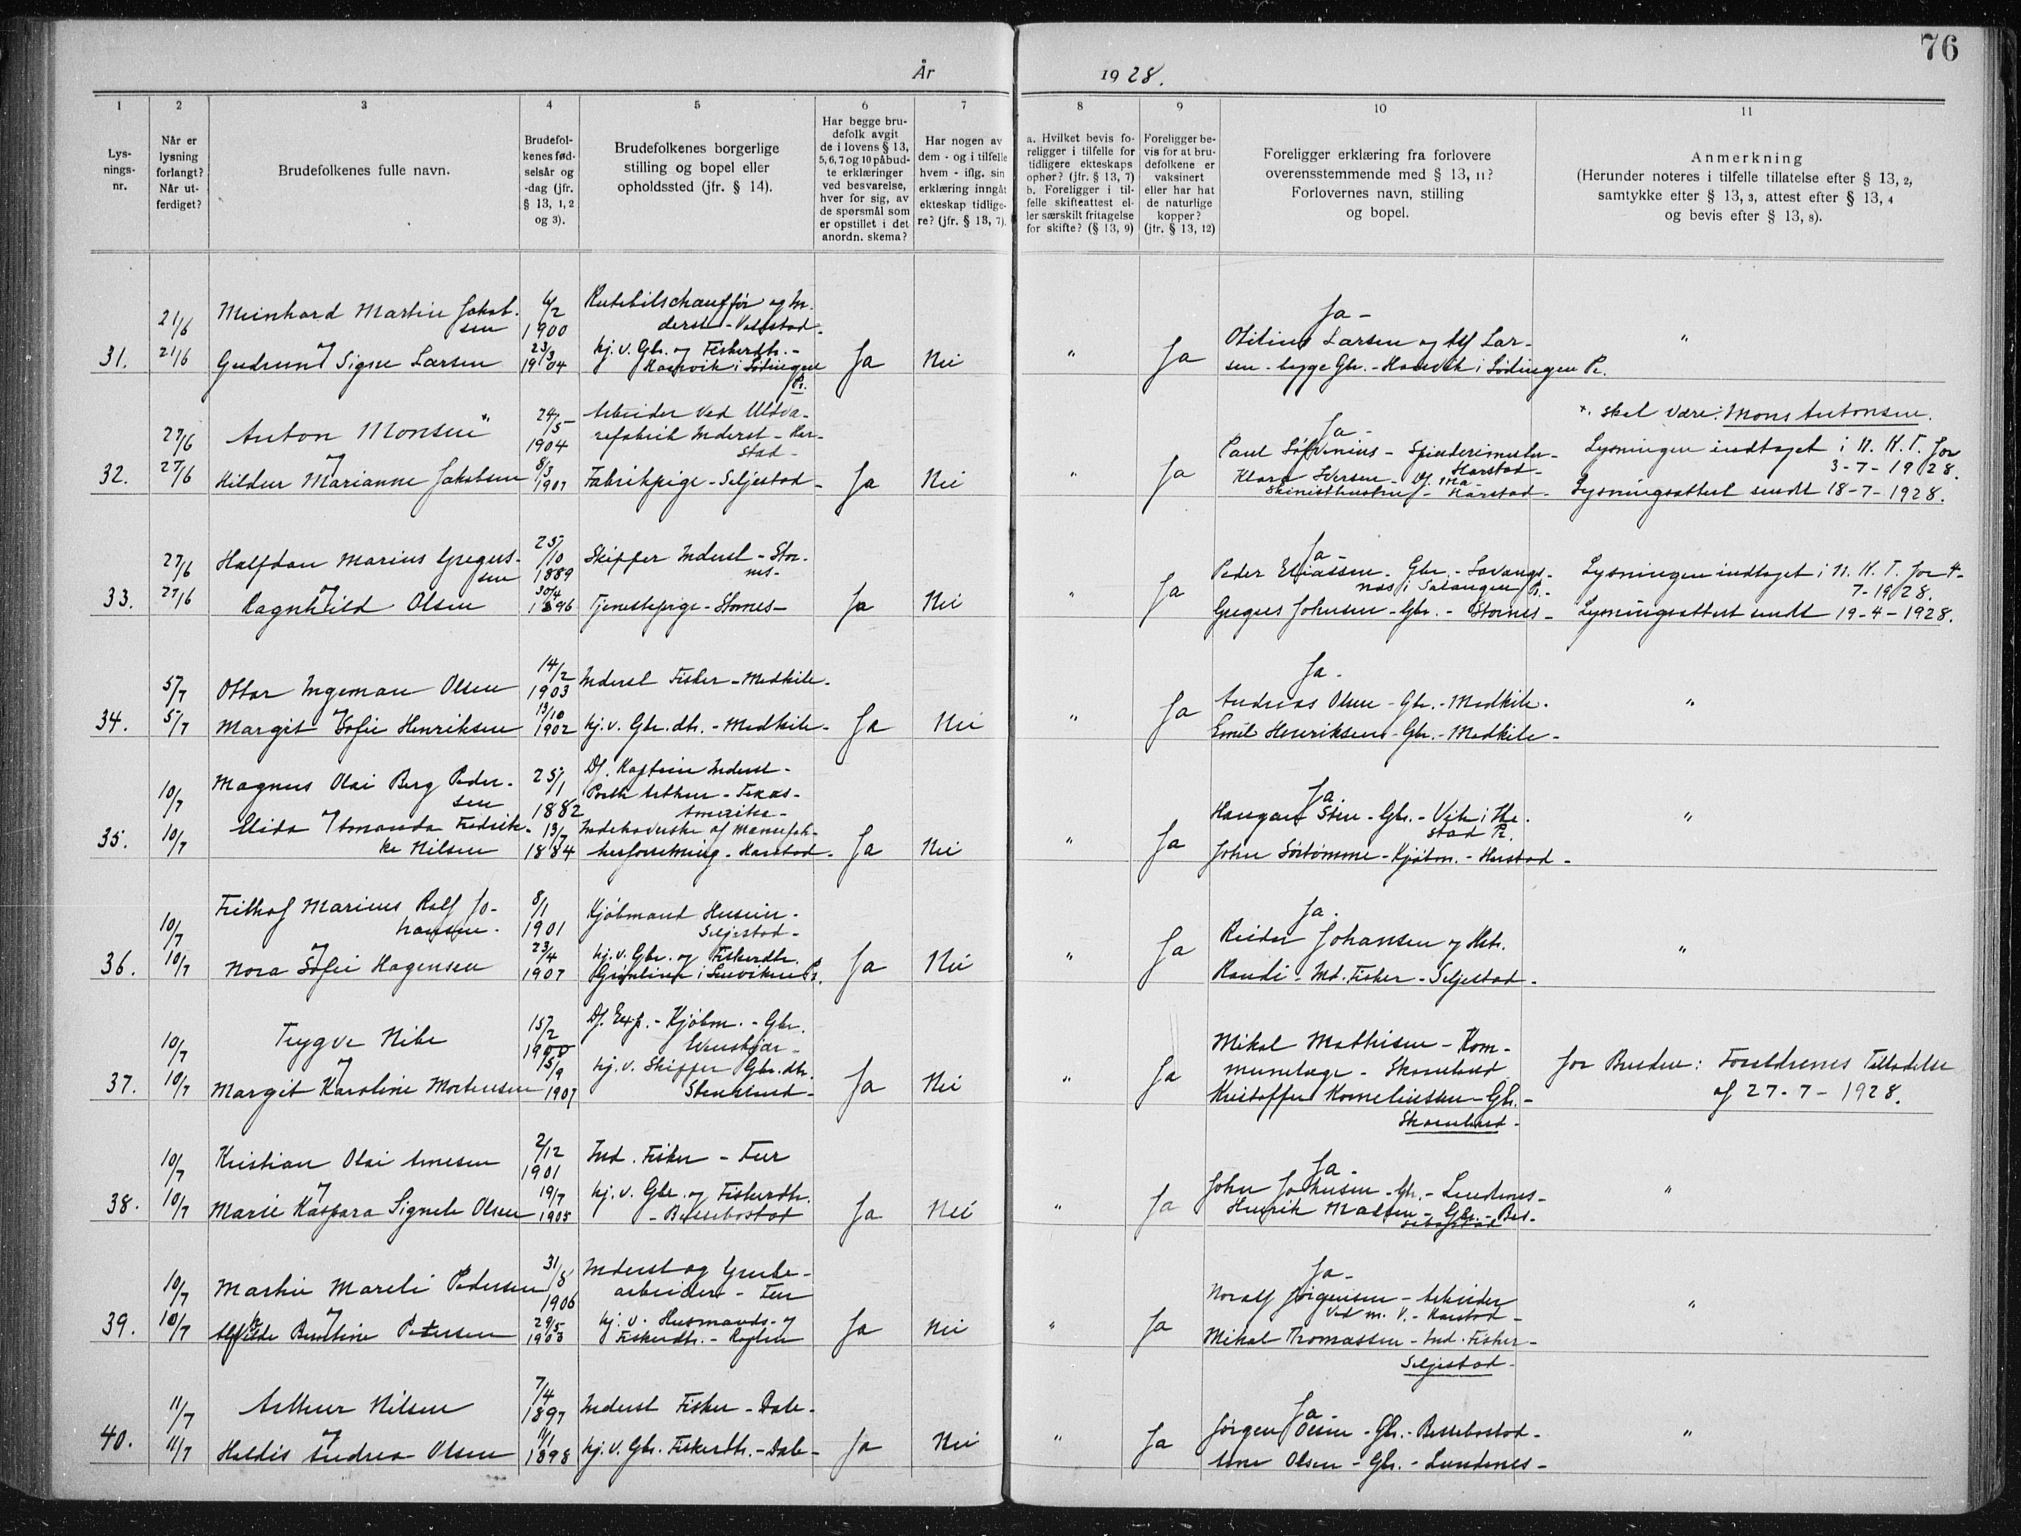 76
År 1928.
1 2 3 4 5 6 7 8 9 10 11
Lys-
nings-
nr.
Når er
lysning
forlangt?
Når ut-
ferdiget?
Brudefolkenes fulle navn.
Brudefol-
kenes fød-
selsår og
-dag (jfr.
§ 13, 1, 2
og 3).
Brudefolkenes borgerlige
stilling og bopel eller
opholdssted (jfr. § 14).
Har begge bru-
defolk avgit
de i lovens § 13,
5, 6, 7 og 10 påbud-
te erklæringer
ved besvarelse,
hver for sig, av
de spørsmål som
er opstillet i det
anordn. skema?
Har nogen av
dem - og i tilfelle
hvem - iflg. sin
erklæring inngått
ekteskap tidlige-
re? (jfr. § 13, 7).
a. Hvilket bevis fo-
religger i tilfelle for
tidligere ekteskaps
ophør? (jfr. § 13, 7)
b. Foreligger i til-
felle skifteattest el-
ler særskilt fritagelse
for skifte? (§ 13, 9)
Foreligger be-
vis for at bru-
defolkene er
vaksinert
eller har hat
de naturlige
kopper?
(jfr. § 13, 12)
Foreligger erklæring fra forlovere
overensstemmende med § 13, 11?
Forlovernes navn, stilling
og bopel.
Anmerkning
(Herunder noteres i tilfelle tillatelse efter § 13, 2,
samtykke efter § 13, 3, attest efter § 13, 4
og bevis efter § 13, 8).
31.
21/6
21/6
Meinhard Martin Jakob-
sen
og
Gudrund Signe Larsen
6/2
1900
23/3
1904
Rutebilschauffør og In-
derst -
hj. v. Gbr. og Fiskerdtr. -
i Lødingen
Pr.
Ja
Nei
"
Ja
Ja -
Otilius Larsen og Alf Lar-
sen - begge Gbr. - i Lødingen Pr.
"
32.
27/6
27/6
Anton Monsen *
og
Hildur Marianne Jakobsen
24/5
1904
8/3
1907
Arbeider ved Uldva-
refabrik Inderst - Har-
stad -
Fabrikpige - Seljestad -
Ja
Nei
"
Ja
Ja -
Paul - Spinderimester -
Harstad -
Klara Iversen - Df. Ma-
skinisthustru - Harstad -
*. skal være: Mons Antonsen.
Lysningen indtaget i N. K. T. for
3-7-1928.
Lysningsattest sendt 18-7-1928.
33.
27/6
27/6
Halfdan Marius Gregus-
sen
og
Ragnhild Olsen
25/10
1889
30/4
1896
Skipper Inderst - Stor-
nes -
Tjenestepige - Stornes -
Ja
Nei
"
Ja
Ja -
Peder Eliassen - Gbr. - Lavangs-
nes i Salangen Pr. -
Gregus Johnsen - Gbr. - Stornes -
Lysningen indtaget i N. K. T. for 4-
7-1928.
Lysningsattest sendt 19-4-1928.
34.
5/7
5/7
Ottar Ingeman Olsen
og
Margit Sofie Henriksen
14/2
1903
13/10
1902
Inderst Fisker - Medkile -
hj. v. Gbr. dtr. - Medkile -
Ja
Nei
"
Ja
Ja -
Andreas Olsen - Gbr. - Medkile -
Emil Henriksen - Gbr. - Medkile -
"
35.
10/7
10/7
Magnus Olai Berg Peder-
sen
og
Alida Amanda Fredrik-
ke Nilsen
25/1
1882
13/7
1884
Df. Kaptein Inderst -
Port Arthur - Texas -
Amerika -
Indehaverske af Manufak-
turforretning - Harstad -
Ja
Nei
"
Ja
Ja -
Stien - Gbr. - Vik i
stad Pr.
John Sørtømme - Kjøbm. - Harstad -
"
36.
10/7
10/7
Frithof Marius Rolf Jo-
hansen -
og
Nora Sofie Hagensen
8/1
1901
23/4
1907
Kjøbmand Huseier -
Seljestad -
hj. v. Gbr. og Fiskerdtr.
i Lenviken Pr.
Ja
Nei
"
Ja
Ja -
Reidar Johansen og Hstr.
Randi - Ind. Fisker - Seljestad -
"
37.
10/7
10/7
Trygve Nibe
og
Margit Karoline Mortensen
15/2
1900
15/9
1907
Df. Exp. - Kjøbm. - Gbr.
Evenskjær -
hj. v. Skipper Gbr. dtr.
Ja
Nei
"
Ja
Mikal Mathisen - Kom-
munelæge -
Kristoffer Korneliussen - Gbr. -
for Bruden: Forældrenes Tilladelse
af 27-7-1928.
38.
10/7
10/7
Kristian Olai Arnesen
og
Marie Kaspara Signete Olsen
2/12
1901
19/7
1905
Ind. Fisker - Fur
hj. v. Gbr. og Fiskerdtr.
- Bessebostad
Ja
Nei
"
Ja
Ja -
John Johnsen - Gbr. - Lundenes -
Henrik - Gbr. - Bes-
sebostad
"
39.
10/7
10/7
Martin Pedersen
og
Berntine Petersen
31/8
1906
29/5
1903
Inderst og Grube-
arbeider - Fur
hj. v. Husmands- og
Fiskerdtr. -
Ja
Nei
"
Ja
Ja -
Noralf Jørgensen - Arbeider
ved M. V. - Harstad -
Mikal Thomassen - Ind. Fisker -
Seljestad -
"
40.
11/7
11/7
Arthur Nilsen
og
Haldis Andrea Olsen
7/4
1897
11/1
1898
Inderst Fisker - Dale -
hj. v. Gbr. Fiskerdtr. - Dale -
Ja
Nei
"
Ja
Ja -
Jørgen Olsen - Gbr. - Bessebostad -
Arne Olsen - Gbr. - Lundenes -
"